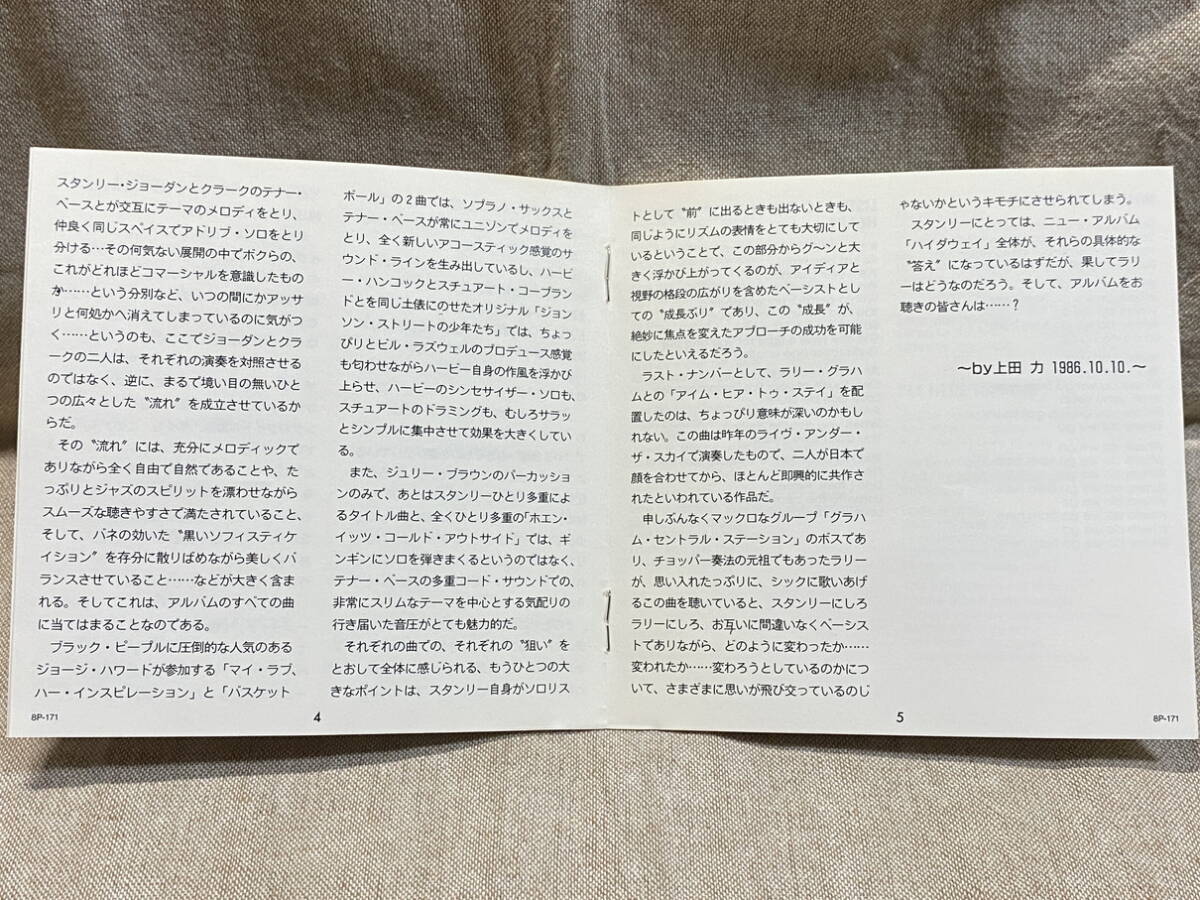 スタンリー・ジョーダンとクラークのテナー・
ベースとが交互にテーマのメロディをとり、
仲良く同じスペイスでアドリブ・ソロをとり
分ける…その何気ない展開の中でボクらの、
これがどれほどコマーシャルを意識したもの
か……という分別など、いつの間にかアッサ
リと何処かへ消えてしまっているのに気がつ
く……というのも、ここでジョーダンとクラ
ークの二人は、それぞれの演奏を対照させる
のではなく、逆に、まるで境い目の無いひと
つの広々とした〝流れ〟を成立させているか
らだ。
その〝流れ〟には、充分にメロディックで
ありながら全く自由で自然であることや、た
っぷりとジャズのスピリットを漂わせながら
スムーズな聴きやすさで満たされていること、
そして、バネの効いた〝黒いソフィスティケ
イション〟を存分に散りばめながら美しくバ
ランスさせていること……などが大きく含ま
れる。そしてこれは、アルバムのすべての曲
に当てはまることなのである。
ブラック・ピープルに圧倒的な人気のある
ジョージ・ハワードが参加する「マイ・ラブ、
ハー・インスピレーション」と「バスケット
ボール」の2曲では、ソプラノ・サックスと
テナー・ベースが常にユニゾンでメロディを
とり、全く新しいアコースティック感覚のサ
ウンド・ラインを生み出しているし、ハービ
ー・ハンコックとスチュアート・コープラン
ドとを同じ土俵にのせたオリジナル「ジョン
ソン・ストリートの少年たち」では、ちょっ
ぴりとビル・ラズウェルのプロデュース感覚
も匂わせながらハービー自身の作風を浮かび
上らせ、ハービーのシンセサイザー・ソロも、
スチュアートのドラミングも、むしろサラッ
とシンプルに集中させて効果を大きくしてい
る。
また、ジュリー・ブラウンのパーカッショ
ンのみで、あとはスタンリーひとり多重によ
るタイトル曲と、全くひとり多重の「ホエン・
イッツ・コールド・アウトサイド」では、ギ
ンギンにソロを弾きまくるというのではなく、
テナー・ベースの多重コード・サウンドでの、
非常にスリムなテーマを中心とする気配りの
行き届いた音圧がとても魅力的だ。
それぞれの曲での、それぞれの〝狙い〟を
とおして全体に感じられる、もうひとつの大
きなポイントは、スタンリー自身がソロリス
8P-171
4
トとして〝前〟に出るときも出ないときも、
同じようにリズムの表情をとても大切にして
いるということで、この部分からグ〜ンと大
きく浮かび上がってくるのが、アイディアと
視野の格段の広がりを含めたベーシストとし
ての〝成長ぶり〟であり、この〝成長〟が、
絶妙に焦点を変えたアプローチの成功を可能
にしたといえるだろう。
ラスト・ナンバーとして、ラリー・グラハ
ムとの「アイム・ヒア・トゥ・ステイ」を配
置したのは、ちょっぴり意味が深いのかもし
れない。この曲は昨年のライヴ・アンダー・
ザ・スカイで演奏したもので、二人が日本で
顔を合わせてから、ほとんど即興的に共作さ
れたといわれている作品だ。
申しぶんなくマックロなグループ「グラハ
ム・セントラル・ステーション」のボスであ
り、チョッパー奏法の元祖でもあったラリー
が、思い入れたっぷりに、シックに歌いあげ
るこの曲を聴いていると、スタンリーにしろ
ラリーにしろ、お互いに間違いなくベーシス
トでありながら、どのように変わったか……
変われたか……変わろうとしているのかにつ
いて、さまざまに思いが飛び交っているのじ
ゃないかというキモチにさせられてしまう。
スタンリーにとっては、ニュー・アルバム
「ハイダウェイ」全体が、それらの具体的な
〝答え〟になっているはずだが、果してラリ
ーはどうなのだろう。そして、アルバムをお
聴きの皆さんは……？
〜by上田 力 1986.10.10.〜
5
8P-171